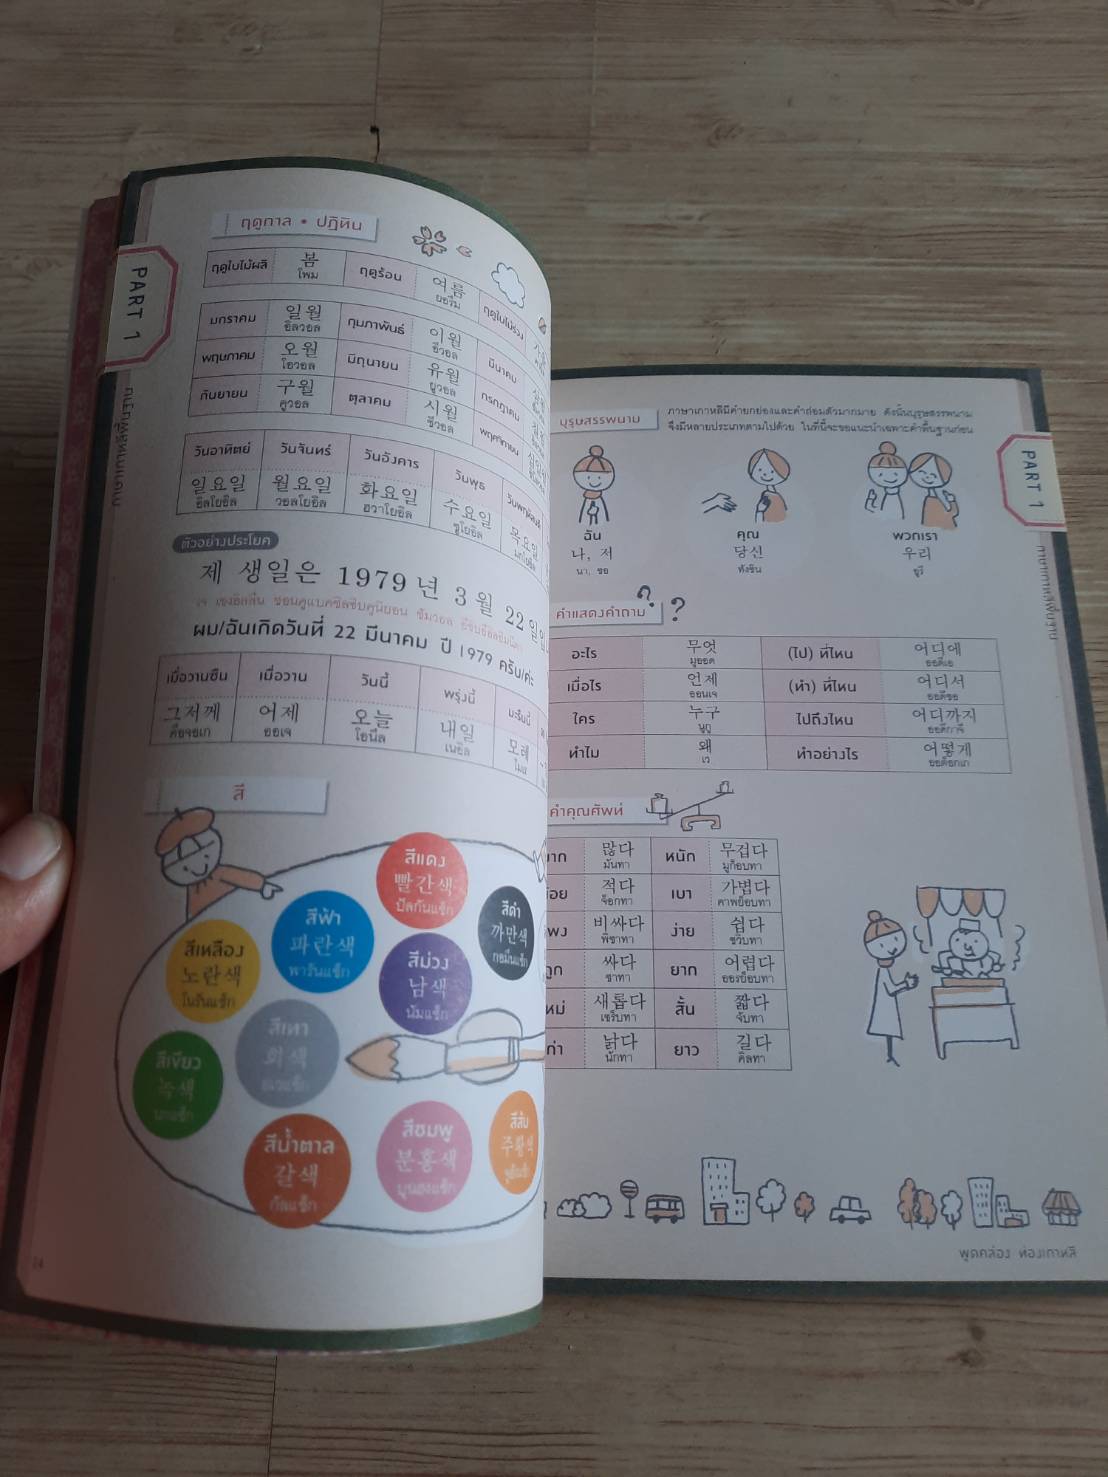 PART 1
ภาษาเกาหลีพื้นฐาน
ฤดูกาล • ปฏิทิน
ฤดูใบไม้ผลิ 봄 ฤดูร้อน 여름 ฤดูใบไม้ร่วง
โพม ยอรึม
มกราคม 일월 กุมภาพันธ์ 이월 มีนาคม
อิลวอล อีวอล
พฤษภาคม 오월 มิถุนายน 유월 กรกฎาคม
โอวอล ยูวอล
กันยายน 구월 ตุลาคม 시월 พฤศจิกายน
คูวอล ชีวอล
วันอาทิตย์ วันจันทร์ วันอังคาร วันพุธ วันพฤหัสบดี
일요일 월요일 화요일 수요일 목요일
อิลโยอิล วอลโยอิล ฮวาโยอิล ซูโยอิล
ตัวอย่างประโยค
제 생일은 1979 년 3 월 22 일
ผม/ฉันเกิดวันที่ 22 มีนาคม ปี 1979 ครับ/ค่ะ
เมื่อวานซืน เมื่อวาน วันนี้ พรุ่งนี้ มะรืนนี้
그저께 어제 오늘 내일 모레
คือจอเก ออเจ โอนึล เนอิล โมเร
สี
สีแดง
빨간색
ปัลกันแซ็ก
สีดำ
까만색
กอมึนแซ็ก
สีฟ้า
파란색
พารันแซ็ก
สีเหลือง
노란색
โนรันแซ็ก
สีม่วง
남색
นัมแซ็ก
สีเทา
회색
สีเขียว
녹색
นกแซ็ก
สีน้ำตาล
갈색
กัลแซ็ก
สีชมพู
분홍색
บุนฮงแซ็ก
สีส้ม
주황색
14
PART 1
ภาษาเกาหลีพื้นฐาน
บุรุษสรรพนาม
ภาษาเกาหลีมีคำยกย่องและคำถ่อมตัวมากมาย ดังนั้นบุรุษสรรพนาม
จึงมีหลายประเภทตามไปด้วย ในที่นี้จะขอแนะนำเฉพาะคำพื้นฐานก่อน
ฉัน คุณ พวกเรา
나, 저 당신 우리
นา, ชอ ทังชิน อูรี
คำแสดงคำถาม ? ?
อะไร 무엇 (ไป) ที่ไหน 어디에
มูออด ออดีเอ
เมื่อไร 언제 (ทำ) ที่ไหน 어디서
ออนเจ ออดีซอ
ใคร 누구 ไปถึงไหน 어디까지
นูกู ออดีกาจี
ทำไม 왜 ทำอย่างไร 어떻게
เว ออต็อกเก
คำคุณศัพท์
많다 หนัก 무겁다
มันทา มูก็อบทา
적다 เบา 가볍다
จ็อกทา คาพย็อบทา
비싸다 ง่าย 쉽다
พิซาทา ชวิบทา
싸다 ยาก 어렵다
ซาทา ออรย็อบทา
새롭다 สั้น 짧다
เซร็บทา จับทา
낡다 ยาว 길다
นักทา คิลทา
พูดคล่อง ท่องเกาหลี